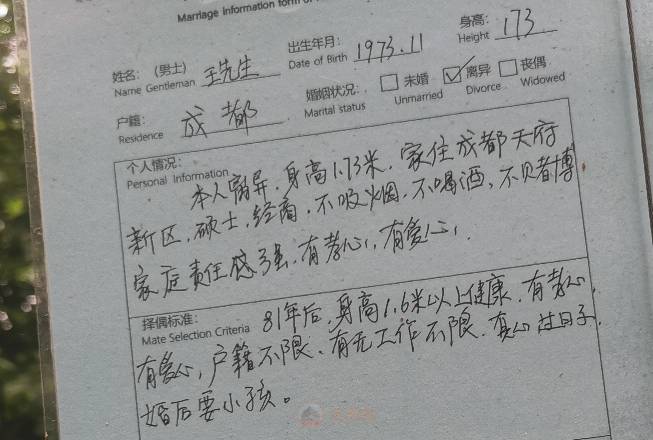 Marriage Information form of
姓名：(男士) 王先生 出生年月： 1973.11 身高： 173
Name Gentleman Date of Birth Height
户籍： 成都 婚姻状况： 未婚 离异 丧偶
Residence Marital status Unmarried Divorce Widowed
个人情况：
Personal Information
本人离异，身高1.73米，家住成都天府
新区，硕士，经商，不吸烟，不喝酒，不贝者博
家庭责任感强，有孝心，有爱心，
择偶标准：
Mate Selection Criteria
81年后，身高1.6米以上健康，有孝心，
有爱心，户籍不限、有无工作不限、真心过日子，
婚后要小孩。